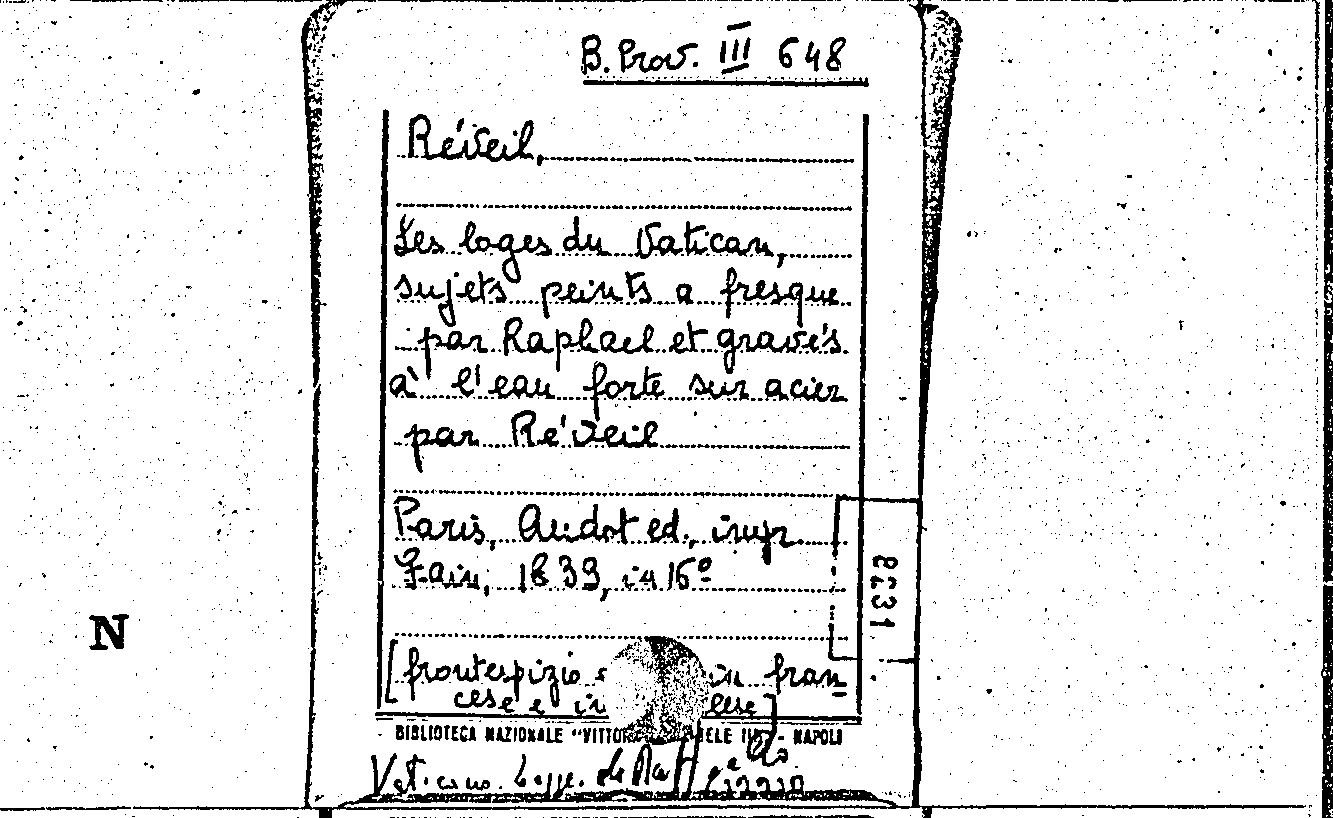 B. Prov. III 648
Réveil,
Les loges du Vatican,
sujets peints a fresque
par Raphael et gravés
à l'eau forte sur acier
par Réveil
Paris, Audot ed., impr.
Fain, 1839, in 16º
8231
N
[frontespizio in fran=
cese e in lese]
BIBLIOTECA NAZIONALE "VITTOR ELE III" - NAPOLI
Vaticano. Logge. di